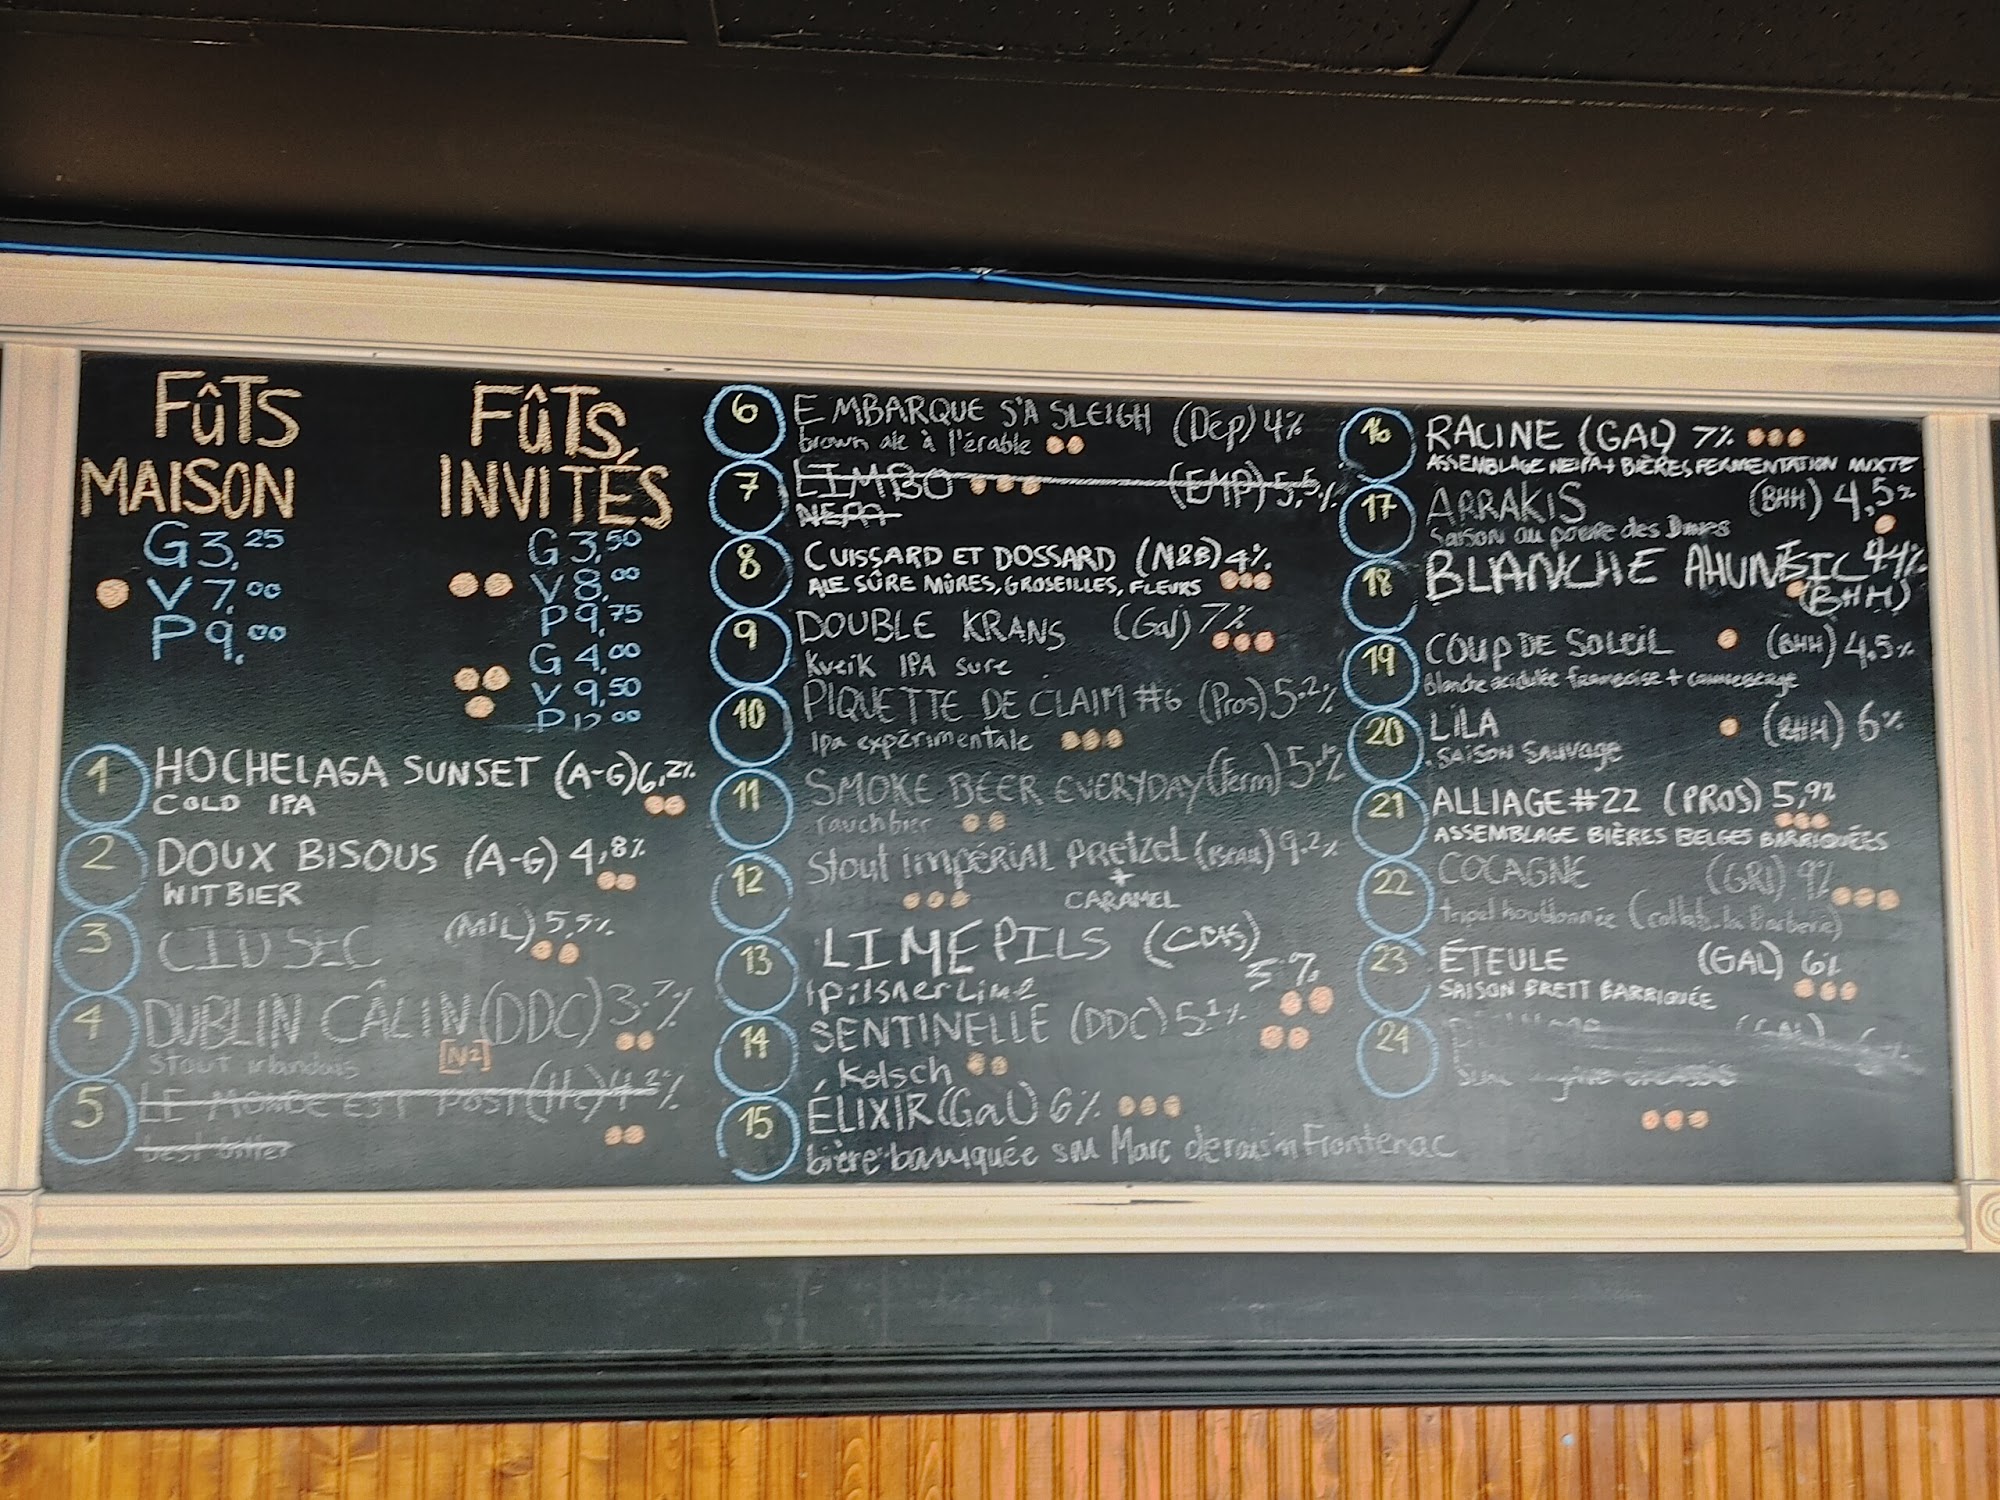 FÛTS
MAISON
G 3,25
V 7,00
P 9,00
FÛTS
INVITÉS
G 3,50
V 8,00
P 9,75
G 4,00
V 9,50
P 12,00
1 HOCHELAGA SUNSET (A-G) 6,2%
COLD IPA
2 DOUX BISOUS (A-G) 4,8%
WITBIER
3 CIDU SEC (MIL) 5,5%
4 DUBLIN CÂLIN (DDC) 3.7%
Stout irlandais [N2]
5 LE MONDE EST POST (Hc) 4.2%
best bitter
6 EMBARQUE S'A SLEIGH (Dép) 4%
brown ale à l'érable
7 LIMBO (EMP) 5,5%
NEPA
8 CUISSARD ET DOSSARD (N&B) 4%
ALE SÛRE MÛRES, GROSEILLES, FLEURS
9 DOUBLE KRANS (Gal) 7%
Kveik IPA sure
10 PIQUETTE DE CLAIM #6 (Pros) 5.2%
Ipa expérimentale
11 SMOKE BEER EVERYDAY (Ferm) 5.1%
rauchbier
12 Stout impérial pretzel (BEAU) 9.2%
+
CARAMEL
13 LIME PILS (CCAS)
5%
pilsner Lime
14 SENTINELLE (DDC) 5.1%
Kolsch
15 ÉLIXIR (Gal) 6%
bière barriquée sur Marc de raisin Frontenac
16 RACINE (GAL) 7%
ASSEMBLAGE NEIPA + BIÈRES FERMENTATION MIXTE
17 ARRAKIS (BHH) 4,5%
Saison au poivre des Dunes
18 BLANCHE AHUNTSIC 4.4%
(BHH)
19 COUP DE SOLEIL (BHH) 4.5%
Blanche acidulée framboise +
20 LILA (BHH) 6%
SAISON SAUVAGE
21 ALLIAGE #22 (PROS) 5,9%
ASSEMBLAGE BIÈRES BELGES BARRIQUÉES
22 COCAGNE (GRI) 9%
tripel houblonnée (collab. la Barberie)
23 ÉTEULE (GAL) 6%
SAISON BRETT BARRIQUÉE
24 (GAL)